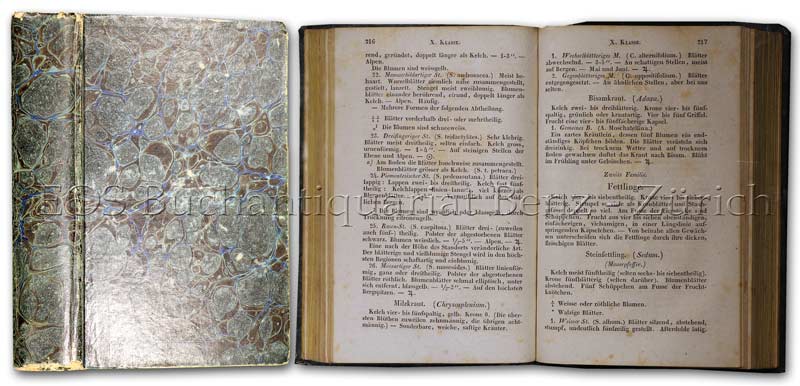 216
X. Klasse.
rend, geründet, doppelt länger als Kelch. — 1-3". —
Alpen.
Die Blumen sind weissgelb.
22. Mannsschildartiger St. (S. androsacea.) Meist be-
haart. Wurzelblätter ziemlich nahe zusammengestellt,
gestielt, lanzett. Stengel meist zweiblumig. Blumen-
blätter einander berührend, eirund, doppelt länger als
Kelch. — Alpen. Häufig.
— Mehrere Formen der folgenden Abtheilung.
‡‡ Blätter vorherrschend drei- oder mehrtheilig.
Die Blumen sind schneeweiss.
23. Dreifingriger St. (S. tridactylites.) Sehr klebrig.
Blätter meist dreitheilig, selten einfach. Kelch gross,
urnenförmig. — Auf steinigen Stellen der
Ebene und Alpen. — ⊙.
a) Am Boden die Blätter buschweise zusammengestellt.
Blumenblätter grösser als Kelch. (S. t. petraea.)
24. Piemontesischer St. (S. pedemontana.) Blätter drei-
lappig: Lappen zwei- bis dreitheilig. Kelch fast fünf-
theilig: Kelchlappen
Blumenblätter
Alpen.
Blumen sind
Trocknung citronengelb.
25. Rasen-St. (S. caespitosa.) Blätter drei- (zuweilen
auch fünf-) theilig. Polster der abgestorbenen Blätter
schwarz. Blumen weisslich. — ½-5". — Alpen. — ♃.
Eine nach der Höhe des Standorts veränderliche Art.
Der blätterige und vielblumige Stengel wird in den höch-
sten Regionen schaftartig und einblumig.
26. Moosartiger St. (S. muscoides.) Blätter linienför-
mig, ganz oder dreitheilig. Polster der abgestorbenen
Blätter röthlich. Blumenblätter schmal elliptisch, unter
sich entfernt, blassgelb. — ½-2". — Auf den höchsten
Bergspitzen. — ♃.
Milzkraut. (Chrysosplenium.)
Kelch vier- bis fünfspaltig, gelb. Krone 0. (Die ober-
sten Blüthen zuweilen zehnmännig, die übrigen acht-
männig.) — Sonderbare, weiche, saftige Kräuter.
X. Klasse.
217
1. Wechselblätteriges M. (C. alternifolium.) Blätter
abwechselnd. — 3-5". — An schattigen Stellen, meist
auf Bergen. — Mai und Juni. — ♃.
2. Gegenblätteriges M. (C. oppositifolium.) Blätter
entgegengesetzt. — An ähnlichen Stellen, aber bei uns
selten.
Bisamkraut. (Adoxa.)
Kelch zwei- bis dreiblätterig. Krone vier- bis fünf-
spaltig, grünlich oder krautartig. Vier bis fünf Griffel.
Frucht eine vier- bis fünffächerige Kapsel.
1. Gemeines B. (A. Moschatellina.)
Ein zartes Kräutlein, dessen fünf Blumen ein end-
ständiges Köpfchen bilden. Die Blätter vierfach sich
dreizinkig. Bei trocknem Wetter und auf trocknem
Boden gewachsen duftet das Kraut nach Bisam. Blüht
im Frühling unter Gebüschen. — ♃.
Zweite Familie.
Fettlinge.
Kelch vier- bis siebentheilig. Krone vier- bis sieben-
theilig. Stempel so viel als Kronblätter und Staub-
gefässe doppelt so viel. Am Fusse der Fruchtknoten
Schüppchen. — Frucht aus vier bis sieben obenständigen,
einfächerigen, vielsamigen, in einer Länglinie auf-
springenden Käpselchen. — Von beinahe allen Gewäch-
sen unterscheiden sich die Fettlinge durch ihre dicken,
fleischigen Blätter.
Steinfettling. (Sedum.)
(Mauerpfeffer.)
Kelch meist fünftheilig (selten sechs- bis siebentheilig).
Krone fünftheilig (selten darüber). Blumenblätter
abstehend. Fünf Schüppchen am Fusse der Frucht-
knötchen.
‡ Weisse oder röthliche Blumen.
* Walzige Blätter.
1. Weisser St. (S. album.) Blätter sitzend, abstehend,
stumpf, undeutlich fünfzeilig gestellt. Afterdolde ästig.
EOS Buchantiquariat Benz - Zürich